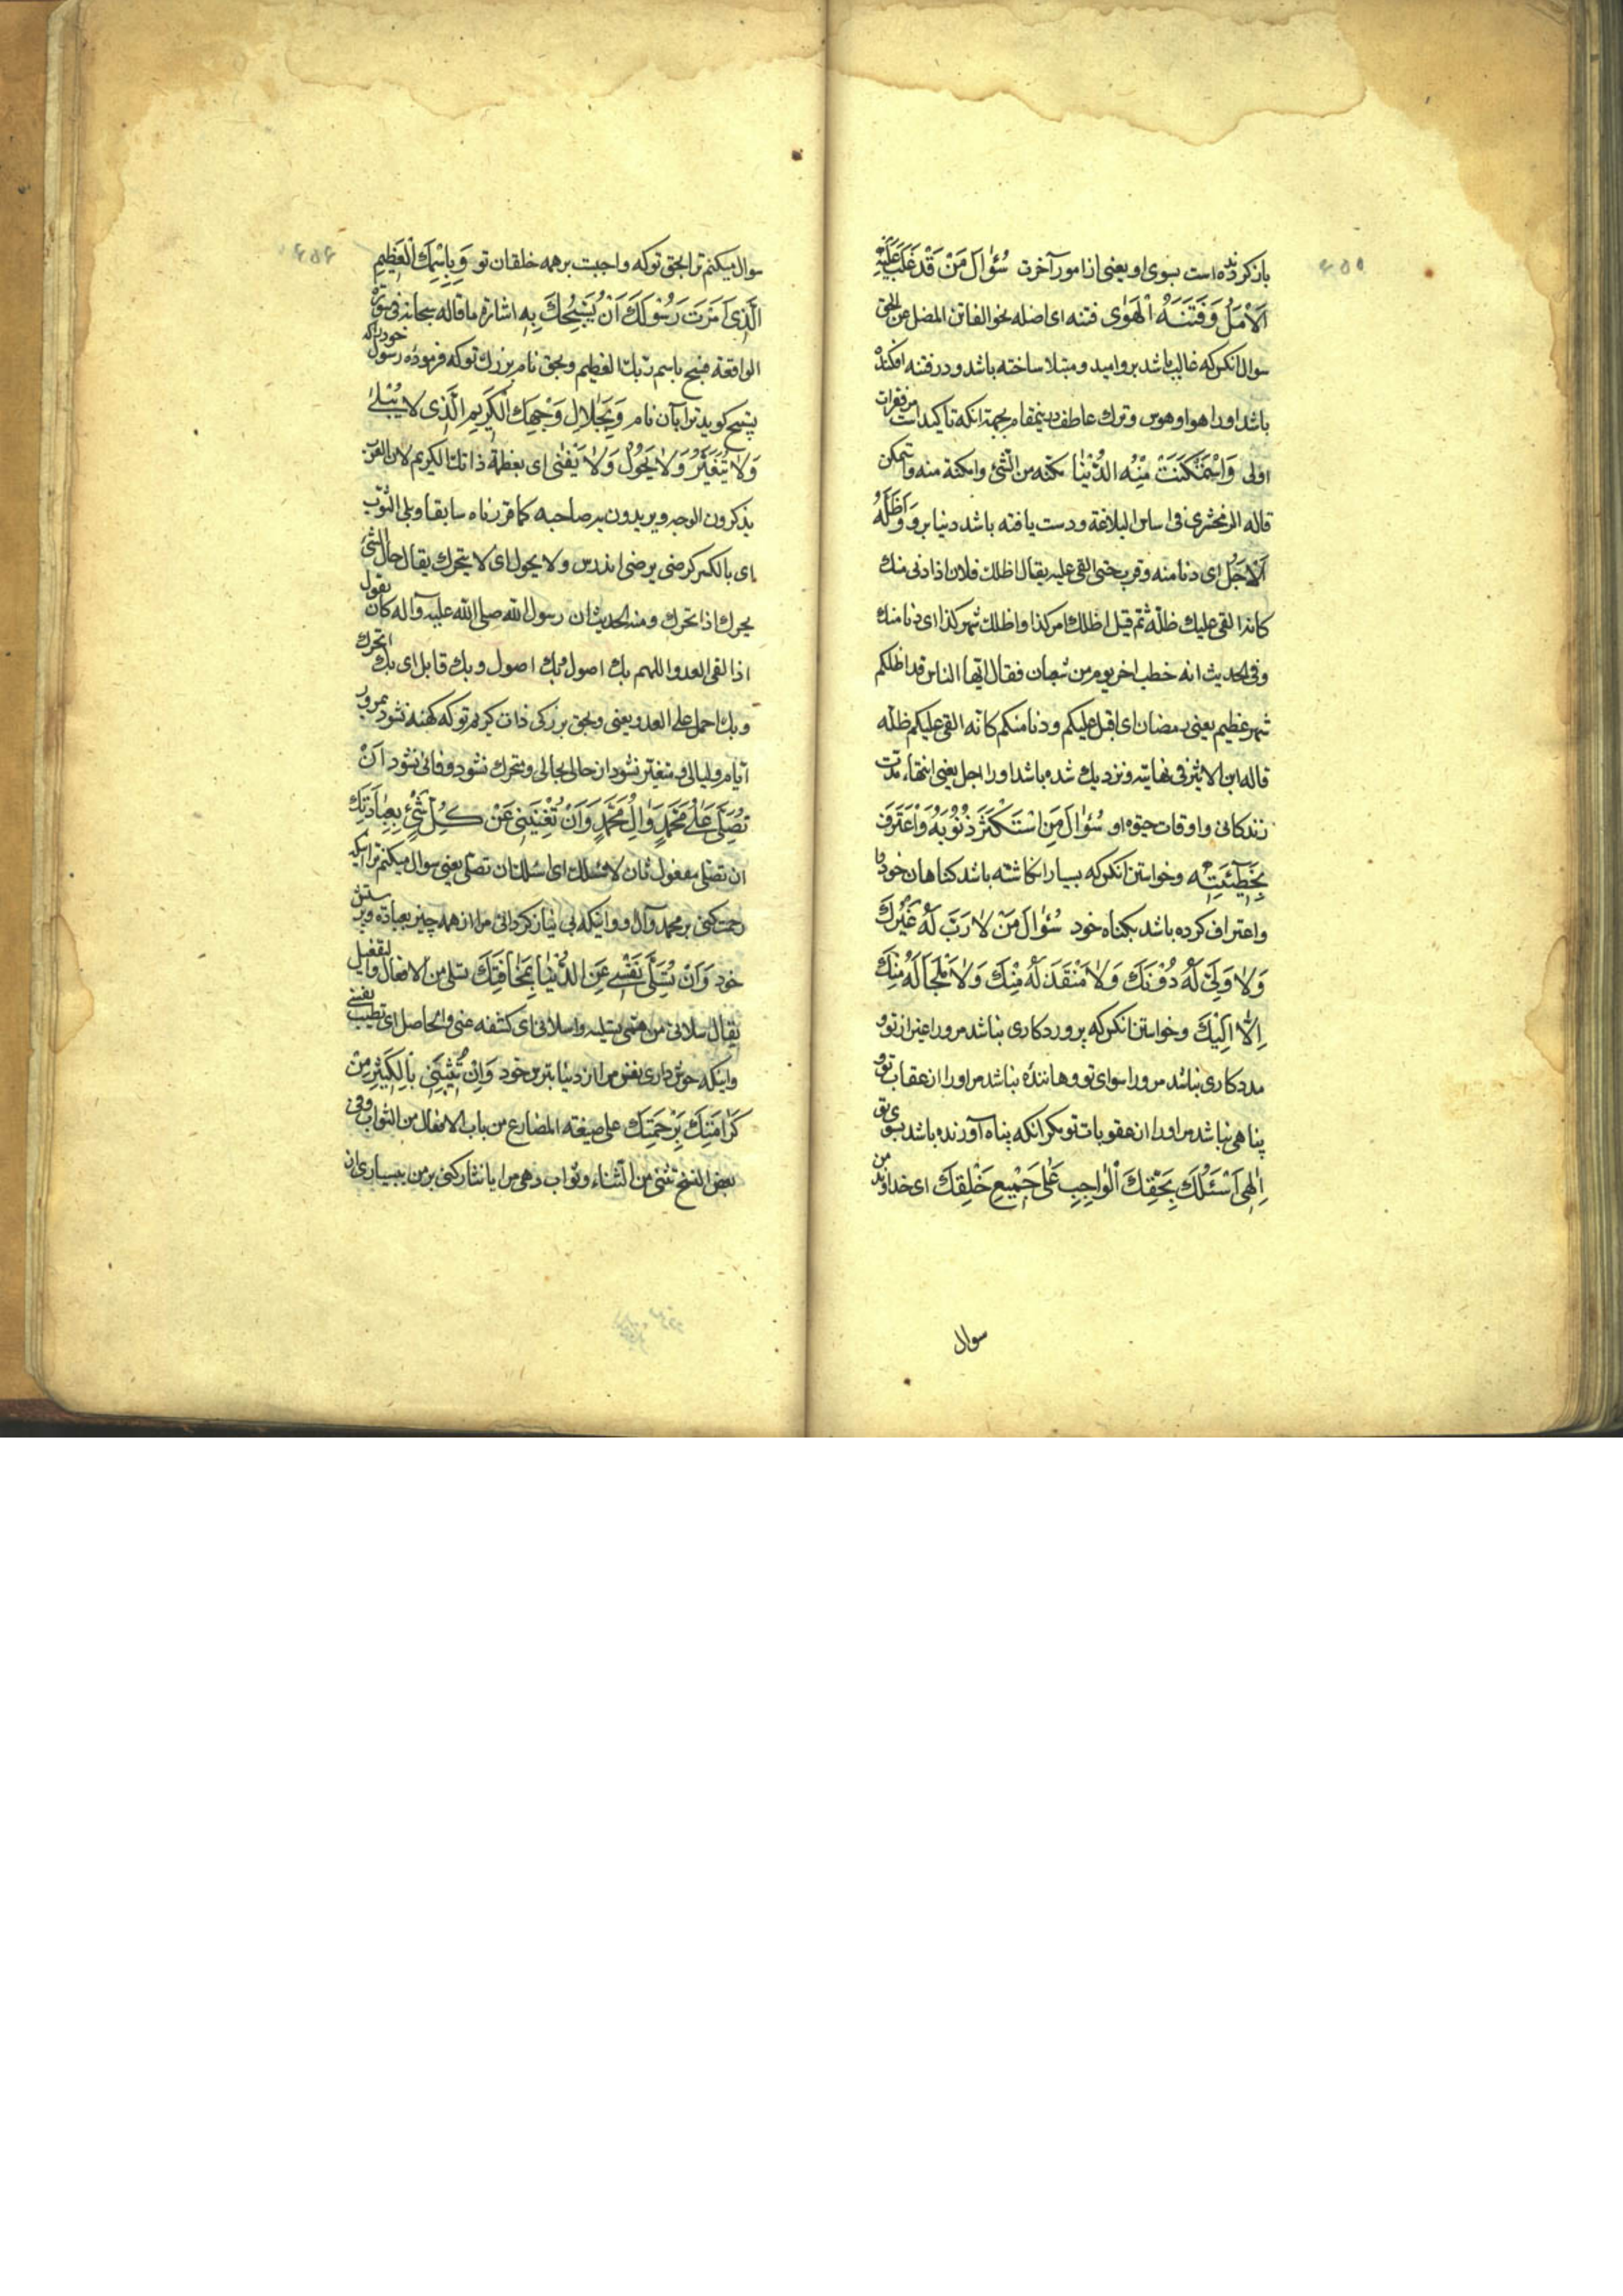 باز کردنده است بسوی او یعنی از امور آخرت سُؤٰالَ مَنْ قَدْ غَلَبَ عَلَیْهِ
اَلْاَمَلُ وَفَتَنَهُ الْهَوٰی فتنه ای اضله نحو الفاتن المضل عن الحق
سوال انکس که غالب باشد بر او امید و مبتلا ساخته باشد و در فتنه افکنده
باشد او را هوا و هوس و ترك عاطف در ینمقام بجهة انکه تاکید است مر فقرات
اولی وَاسْتَمْکَنَتْ مِنْهُ الدُّنْیٰا مکنه من الشئ وامکنه منه واستمکن
قاله الزمخشری فی اساس البلاغة و دست یافته باشد دنیا برو وَاَظَلَّهُ
اَلْاَجَلُ ای دنا منه وقرب حتی القی علیه یقال اظلك فلان اذا دنی منك
کانه القی علیك ظلّه ثم قیل اظلك امر کذا واظلك شهر کذا ای دنا منك
وفی الحدیث انه خطب اخر یوم من شعبان فقال ایّها الناس قد اظلکم
شهر عظیم یعنی رمضان ای اقبل علیکم و دنا منکم کانّه القی علیکم ظلّه
قاله ابن الاثیر فی نهایته و نزدیك شده باشد او را اجل یعنی انتهاء مدّت
زندکانی و اوقات حیوة او سُؤٰالَ مَنِ اسْتَکْثَرَ ذُنُوْبَهُ وَاعْتَرَفَ
بِخَطٓیئَتِهِ وخواستن انکس که بسیار انکاشته باشد کناهان خود را
و اعتراف کرده باشد بکناه خود سُؤٰالَ مَنْ لٰا رَبَّ لَهُ غَیْرُكَ
وَلٰا وَلِیَّ لَهُ دُوْنَكَ وَلٰا مُنْقِذَ لَهُ مِنْكَ وَلٰا مَلْجَأَ لَهُ مِنْكَ
اِلّٰا اِلَیْكَ وخواستن انکس که پروردکاری نباشد مر او را غیر از تو و
مددکاری نباشد مر او را سوای تو و رهاننده نباشد مر او را از عقاب تو و
پناهی نباشد مر او را از عقوبات تو مکر انکه پناه آورنده باشد بسوی تو
اِلٰهی اَسْئَلُكَ بِحَقِّكَ الْوٰاجِبِ عَلٰی جَمیْعِ خَلْقِكَ ای خداوند من
سوال
سوال میکنم ترا بحق تو که واجبت بر همه خلقان تو وَبِاسْمِكَ الْعَظیْمِ
الَّذی اَمَرْتَ رَسُوْلَكَ اَنْ یُسَبِّحَكَ بِهِ اشارة ما قاله سبحانه فی سورة
الواقعة فسبح باسم ربّك العظیم و بحق نام بزرك تو که فرموده رسول خود را که
تسبیح کوید ترا بآن نام وَبِجَلٰالِ وَجْهِكَ الْکَریْمِ الَّذی لٰا یَبْلٰی
وَلٰا یَتَغَیَّرُ وَلٰا یَحُوْلُ وَلٰا یَفْنٰی ای بعظمة ذاتك الکریم لان العرب
یذکرون الوجه ویریدون به صاحبه کما قررناه سابقا وبلی الثوب
ای بالکسر کرضی یرضی اندرس ولا یحول ای لا یتحرك یقال حال الشئ
یحرك اذا تحرك ومنه الحدیث ان رسول الله صلی الله علیه وآله کان یقول
اذا لقی العدو اللهم بك اصول بك اصول وبك قابل ای بك اتحرك
وبك احمل علی العدو یعنی و بحق بزرکی ذات کریم تو که کهنه نشود بمرور
ایّام و لیالی و متغیّر نشود از حالی بحالی و متحرك نشود و فانی نشود اَنْ
تُصَلِّیَ عَلٰی مُحَمَّدٍ وَاٰلِ مُحَمَّدٍ وَاَنْ تُغْنِیَنی عَنْ کُلِّ شَیْءٍ بِعِبٰادَتِكَ
ان تصلی مفعول ثان لاسئلك ای اسئلك ان تصلی یعنی سوال میکنم ترا اینکه
رحمت کنی بر محمد و آل او و اینکه بی نیاز کردانی مرا از همه چیز بعبادة و پرستش
خود وَاَنْ تُسَلِّیَ نَفْسی عَنِ الدُّنْیٰا بِمَخٰافَتِكَ تسلی من الافعال والتفعیل
یقال سلانی من همی تسلیه واسلانی ای کشفه عنی والحاصل ای تطیب نفسی
و اینکه خوش داری نفس مرا از دنیا بترس خود وَاَنْ تُثیْبَنی بِالْکَثیْرِ مِنْ
کَرٰامَتِكَ بِرَحْمَتِكَ علی صیغة المضارع من باب الافعال من الثواب وفی
بعض النسخ تثنی من الثناء و ثواب دهی مرا یا نثار کنی بر من ببسیاری از